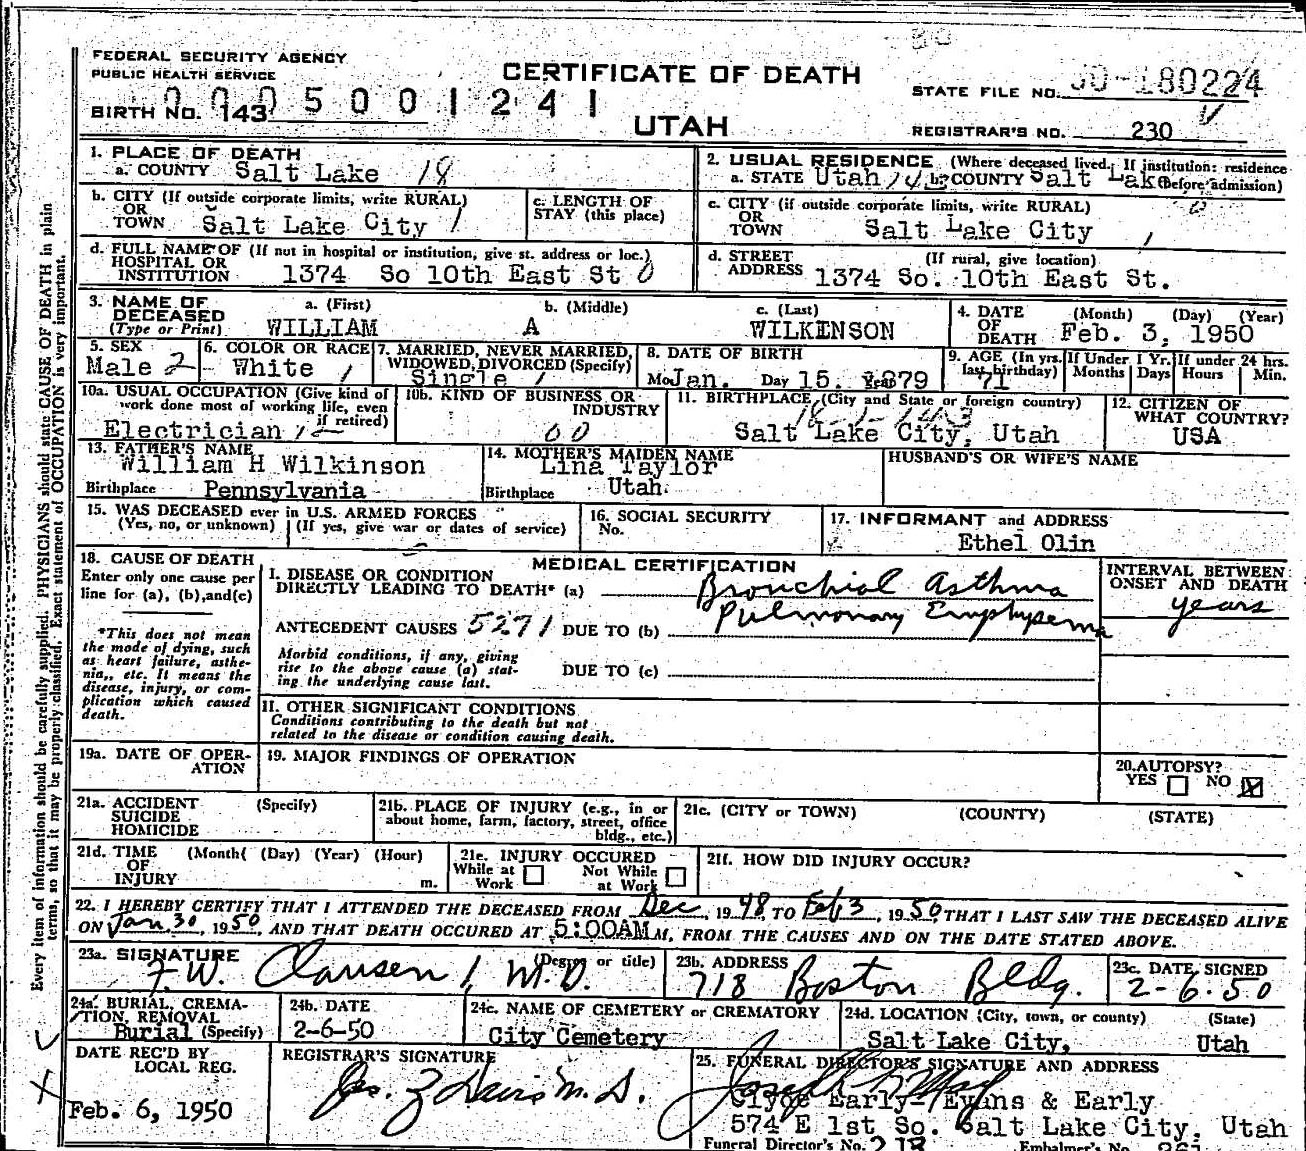 FEDERAL SECURITY AGENCY
PUBLIC HEALTH SERVICE
CERTIFICATE OF DEATH
UTAH
0005001241
BIRTH NO. 143
STATE FILE NO. 50-180224
REGISTRAR'S NO. 230
1. PLACE OF DEATH
a. COUNTY Salt Lake 18
2. USUAL RESIDENCE (Where deceased lived. If institution: residence
a. STATE Utah b. COUNTY Salt Lake (Before admission)
b. CITY (If outside corporate limits, write RURAL)
OR
TOWN Salt Lake City 1
c. LENGTH OF
STAY (this place)
c. CITY (if outside corporate limits, write RURAL)
OR
TOWN Salt Lake City 1
d. FULL NAME OF (If not in hospital or institution, give st. address or loc.)
HOSPITAL OR
INSTITUTION 1374 So 10th East St 0
d. STREET (If rural, give location)
ADDRESS 1374 So. 10th East St.
3. NAME OF a. (First) b. (Middle) c. (Last)
DECEASED
(Type or Print) WILLIAM A WILKINSON
4. DATE (Month) (Day) (Year)
OF
DEATH Feb. 3, 1950
5. SEX
Male 2
6. COLOR OR RACE
White 1
7. MARRIED, NEVER MARRIED,
WIDOWED, DIVORCED (Specify)
Single 1
8. DATE OF BIRTH
Mo. Jan. Day 15. Year 1879
9. AGE (In yrs. last birthday) 71
If Under 1 Yr. Months Days
If under 24 hrs. Hours Min.
10a. USUAL OCCUPATION (Give kind of
work done most of working life, even
if retired)
Electrician
10b. KIND OF BUSINESS OR
INDUSTRY
00
11. BIRTHPLACE (City and State or foreign country)
Salt Lake City, Utah
12. CITIZEN OF
WHAT COUNTRY?
USA
13. FATHER'S NAME
William H Wilkinson
Birthplace Pennsylvania
14. MOTHER'S MAIDEN NAME
Lina Taylor
Birthplace Utah
HUSBAND'S OR WIFE'S NAME
15. WAS DECEASED ever in U.S. ARMED FORCES
(Yes, no, or unknown) (If yes, give war or dates of service)
16. SOCIAL SECURITY
No.
17. INFORMANT and ADDRESS
Ethel Olin
18. CAUSE OF DEATH
Enter only one cause per
line for (a), (b), and (c)
*This does not mean
the mode of dying, such
as heart failure, asthe-
nia,, etc. It means the
disease, injury, or com-
plication which caused
death.
MEDICAL CERTIFICATION
I. DISEASE OR CONDITION
DIRECTLY LEADING TO DEATH* (a) Bronchial Asthma
ANTECEDENT CAUSES 5271 DUE TO (b) Pulmonary Emphysema
Morbid conditions, if any, giving
rise to the above cause (a) stat-
ing the underlying cause last.
DUE TO (c)
INTERVAL BETWEEN
ONSET AND DEATH
years
II. OTHER SIGNIFICANT CONDITIONS
Conditions contributing to the death but not
related to the disease or condition causing death.
19a. DATE OF OPER-
ATION
19. MAJOR FINDINGS OF OPERATION
20. AUTOPSY?
YES NO X
21a. ACCIDENT (Specify)
SUICIDE
HOMICIDE
21b. PLACE OF INJURY (e.g., in or
about home, farm, factory, street, office
bldg., etc.)
21c. (CITY or TOWN) (COUNTY) (STATE)
21d. TIME (Month( (Day) (Year) (Hour)
OF
INJURY m.
21e. INJURY OCCURED
While at Work Not While at Work
21f. HOW DID INJURY OCCUR?
22. I HEREBY CERTIFY THAT I ATTENDED THE DECEASED FROM Dec, 1948, TO Feb 3, 1950 THAT I LAST SAW THE DECEASED ALIVE
ON Jan. 30, 1950, AND THAT DEATH OCCURED AT 5:00AM M, FROM THE CAUSES AND ON THE DATE STATED ABOVE.
23a. SIGNATURE (Degree or title)
F. W. Clausen, M.D.
23b. ADDRESS
718 Boston Bldg.
23c. DATE SIGNED
2-6-50
24a. BURIAL, CREMA-
TION, REMOVAL
Burial (Specify)
24b. DATE
2-6-50
24c. NAME OF CEMETERY or CREMATORY
City Cemetery
24d. LOCATION (City, town, or county) (State)
Salt Lake City, Utah
DATE REC'D BY
LOCAL REG.
Feb. 6, 1950
REGISTRAR'S SIGNATURE
25. FUNERAL DIRECTOR'S SIGNATURE AND ADDRESS
Clyde Early-Evans & Early
574 E 1st So. Salt Lake City, Utah
Funeral Director's No. 218 Embalmer's No.
Every item of information should be carefully supplied. PHYSICIANS should state CAUSE OF DEATH in plain
terms, so that it may be properly classified. Exact statement of OCCUPATION is very important.